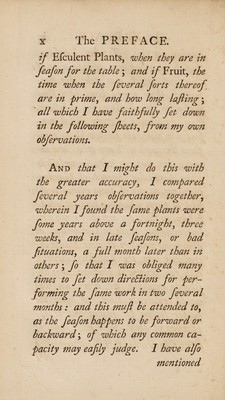 x The PREFACE.
if Eſculent Plants, when they are in
ſeaſon for the table; and if Fruit, the
time when the ſeveral ſorts thereof
are in prime, and how long laſting;
all which I have faithfully ſet down
in the following ſheets, from my own
obſervations.
AND that I might do this with
the greater accuracy, I compared
ſeveral years obſervations together,
wherein I found the ſame plants were
ſome years above a fortnight, three
weeks, and in late ſeaſons, or bad
ſituations, a full month later than in
others; ſo that I was obliged many
times to ſet down directions for per-
forming the ſame work in two ſeveral
months: and this muſt be attended to,
as the ſeaſon happens to be forward or
backward; of which any common ca-
pacity may eaſily judge. I have alſo
mentioned